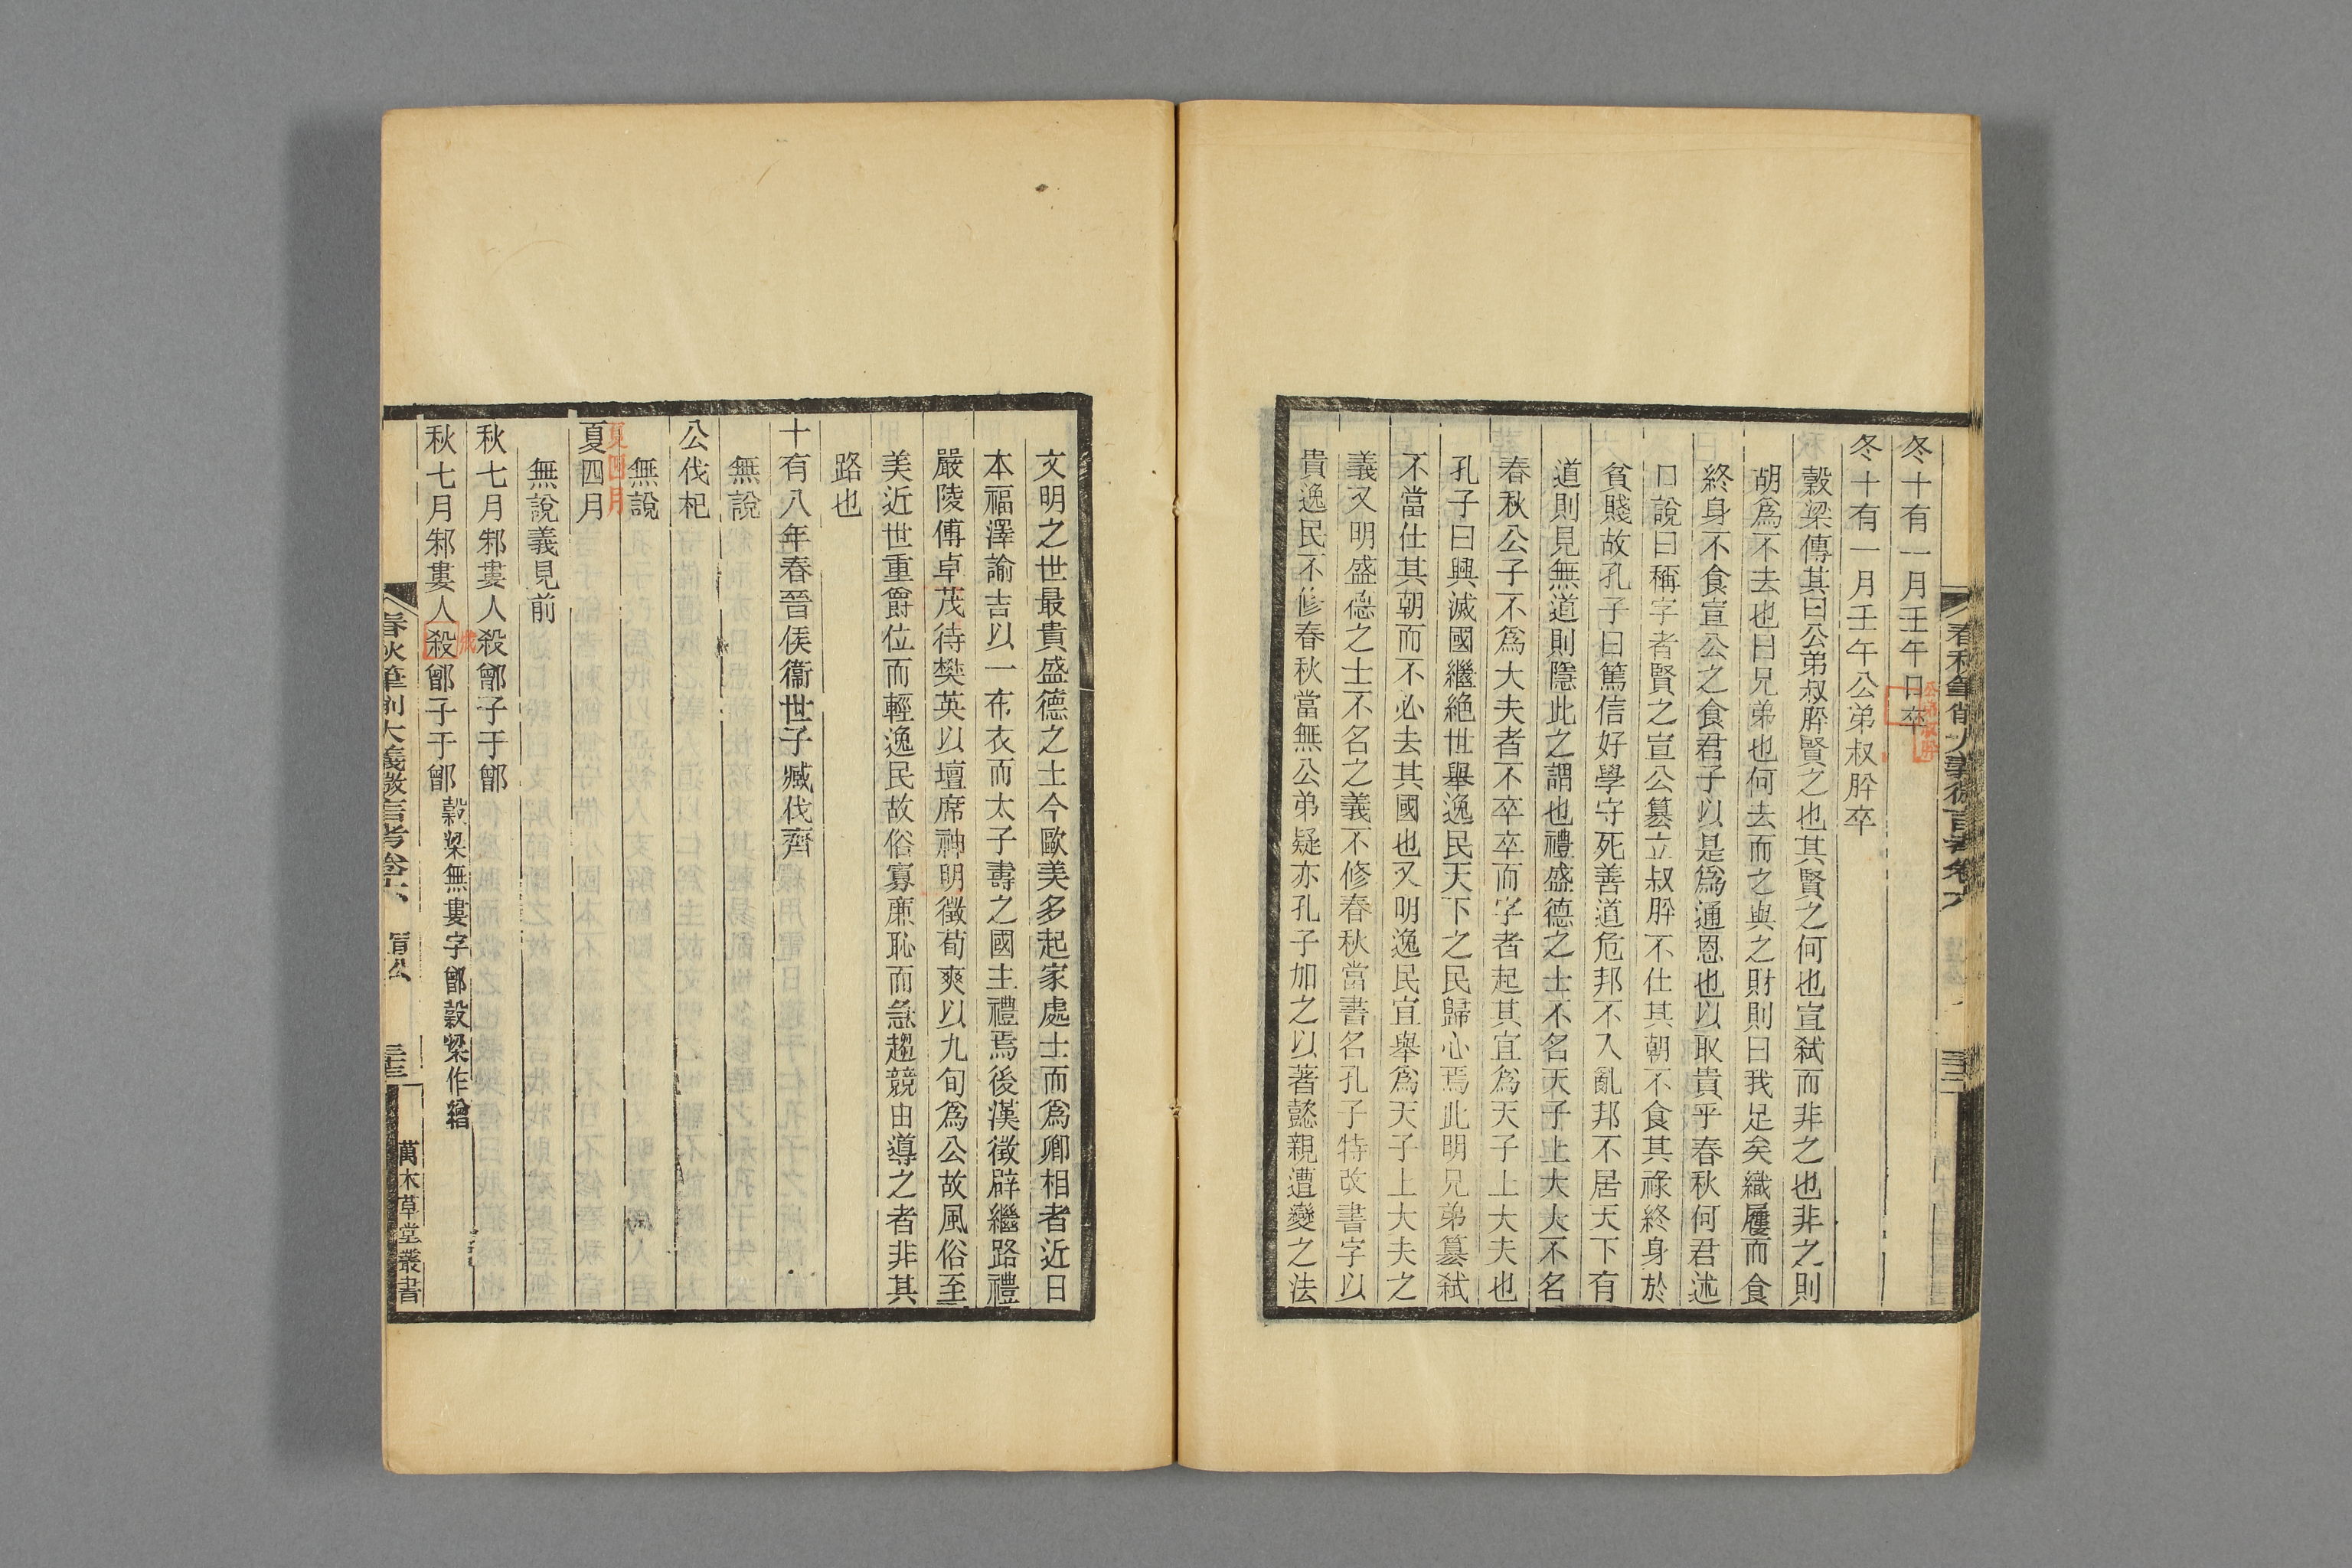 春秋筆削大義微言考卷六
三十二
冬十有一月壬午日卒
公弟叔肸
冬十有一月壬午公弟叔肸卒
穀梁傳其曰公弟叔肸賢之也其賢之何也宣弑而非之也非之則
胡爲不去也曰兄弟也何去而之與之財則曰我足矣織屨而食
終身不食宣公之食君子以是爲通恩也以取貴乎春秋何君述
口說曰稱字者賢之宣公篡立叔肸不仕其朝不食其祿終身於
貧賤故孔子曰篤信好學守死善道危邦不入亂邦不居天下有
道則見無道則隱此之謂也禮盛德之士不名天子上大夫不名
春秋公子不爲大夫者不卒卒而字者起其宜爲天子上大夫也
孔子曰興滅國繼絶世舉逸民天下之民歸心焉此明兄弟篡弑
不當仕其朝而不必去其國也又明逸民宜舉爲天子上大夫之
義又明盛德之士不名之義不修春秋當書名孔子特改書字以
貴逸民不修春秋當無公弟疑亦孔子加之以著懿親遭變之法
文明之世最貴盛德之士今歐美多起家處士而爲卿相者近日
本福澤諭吉以一布衣而太子壽之國主禮焉後漢徵辟繼路禮
嚴陵傅卓茂待樊英以壇席神明徵荀爽以九旬爲公故風俗至
美近世重爵位而輕逸民故俗寡廉恥而急趨競由導之者非其
路也
十有八年春晉侯衞世子臧伐齊
無說
公伐杞
無說
夏四月
夏四月
無說義見前
秋七月邾婁人殺鄫子于鄫
戕
秋七月邾婁人殺鄫子于鄫 穀梁無婁字鄫穀梁作繒
春秋筆削大義微言考卷六 宣公
三十三
萬木草堂叢書